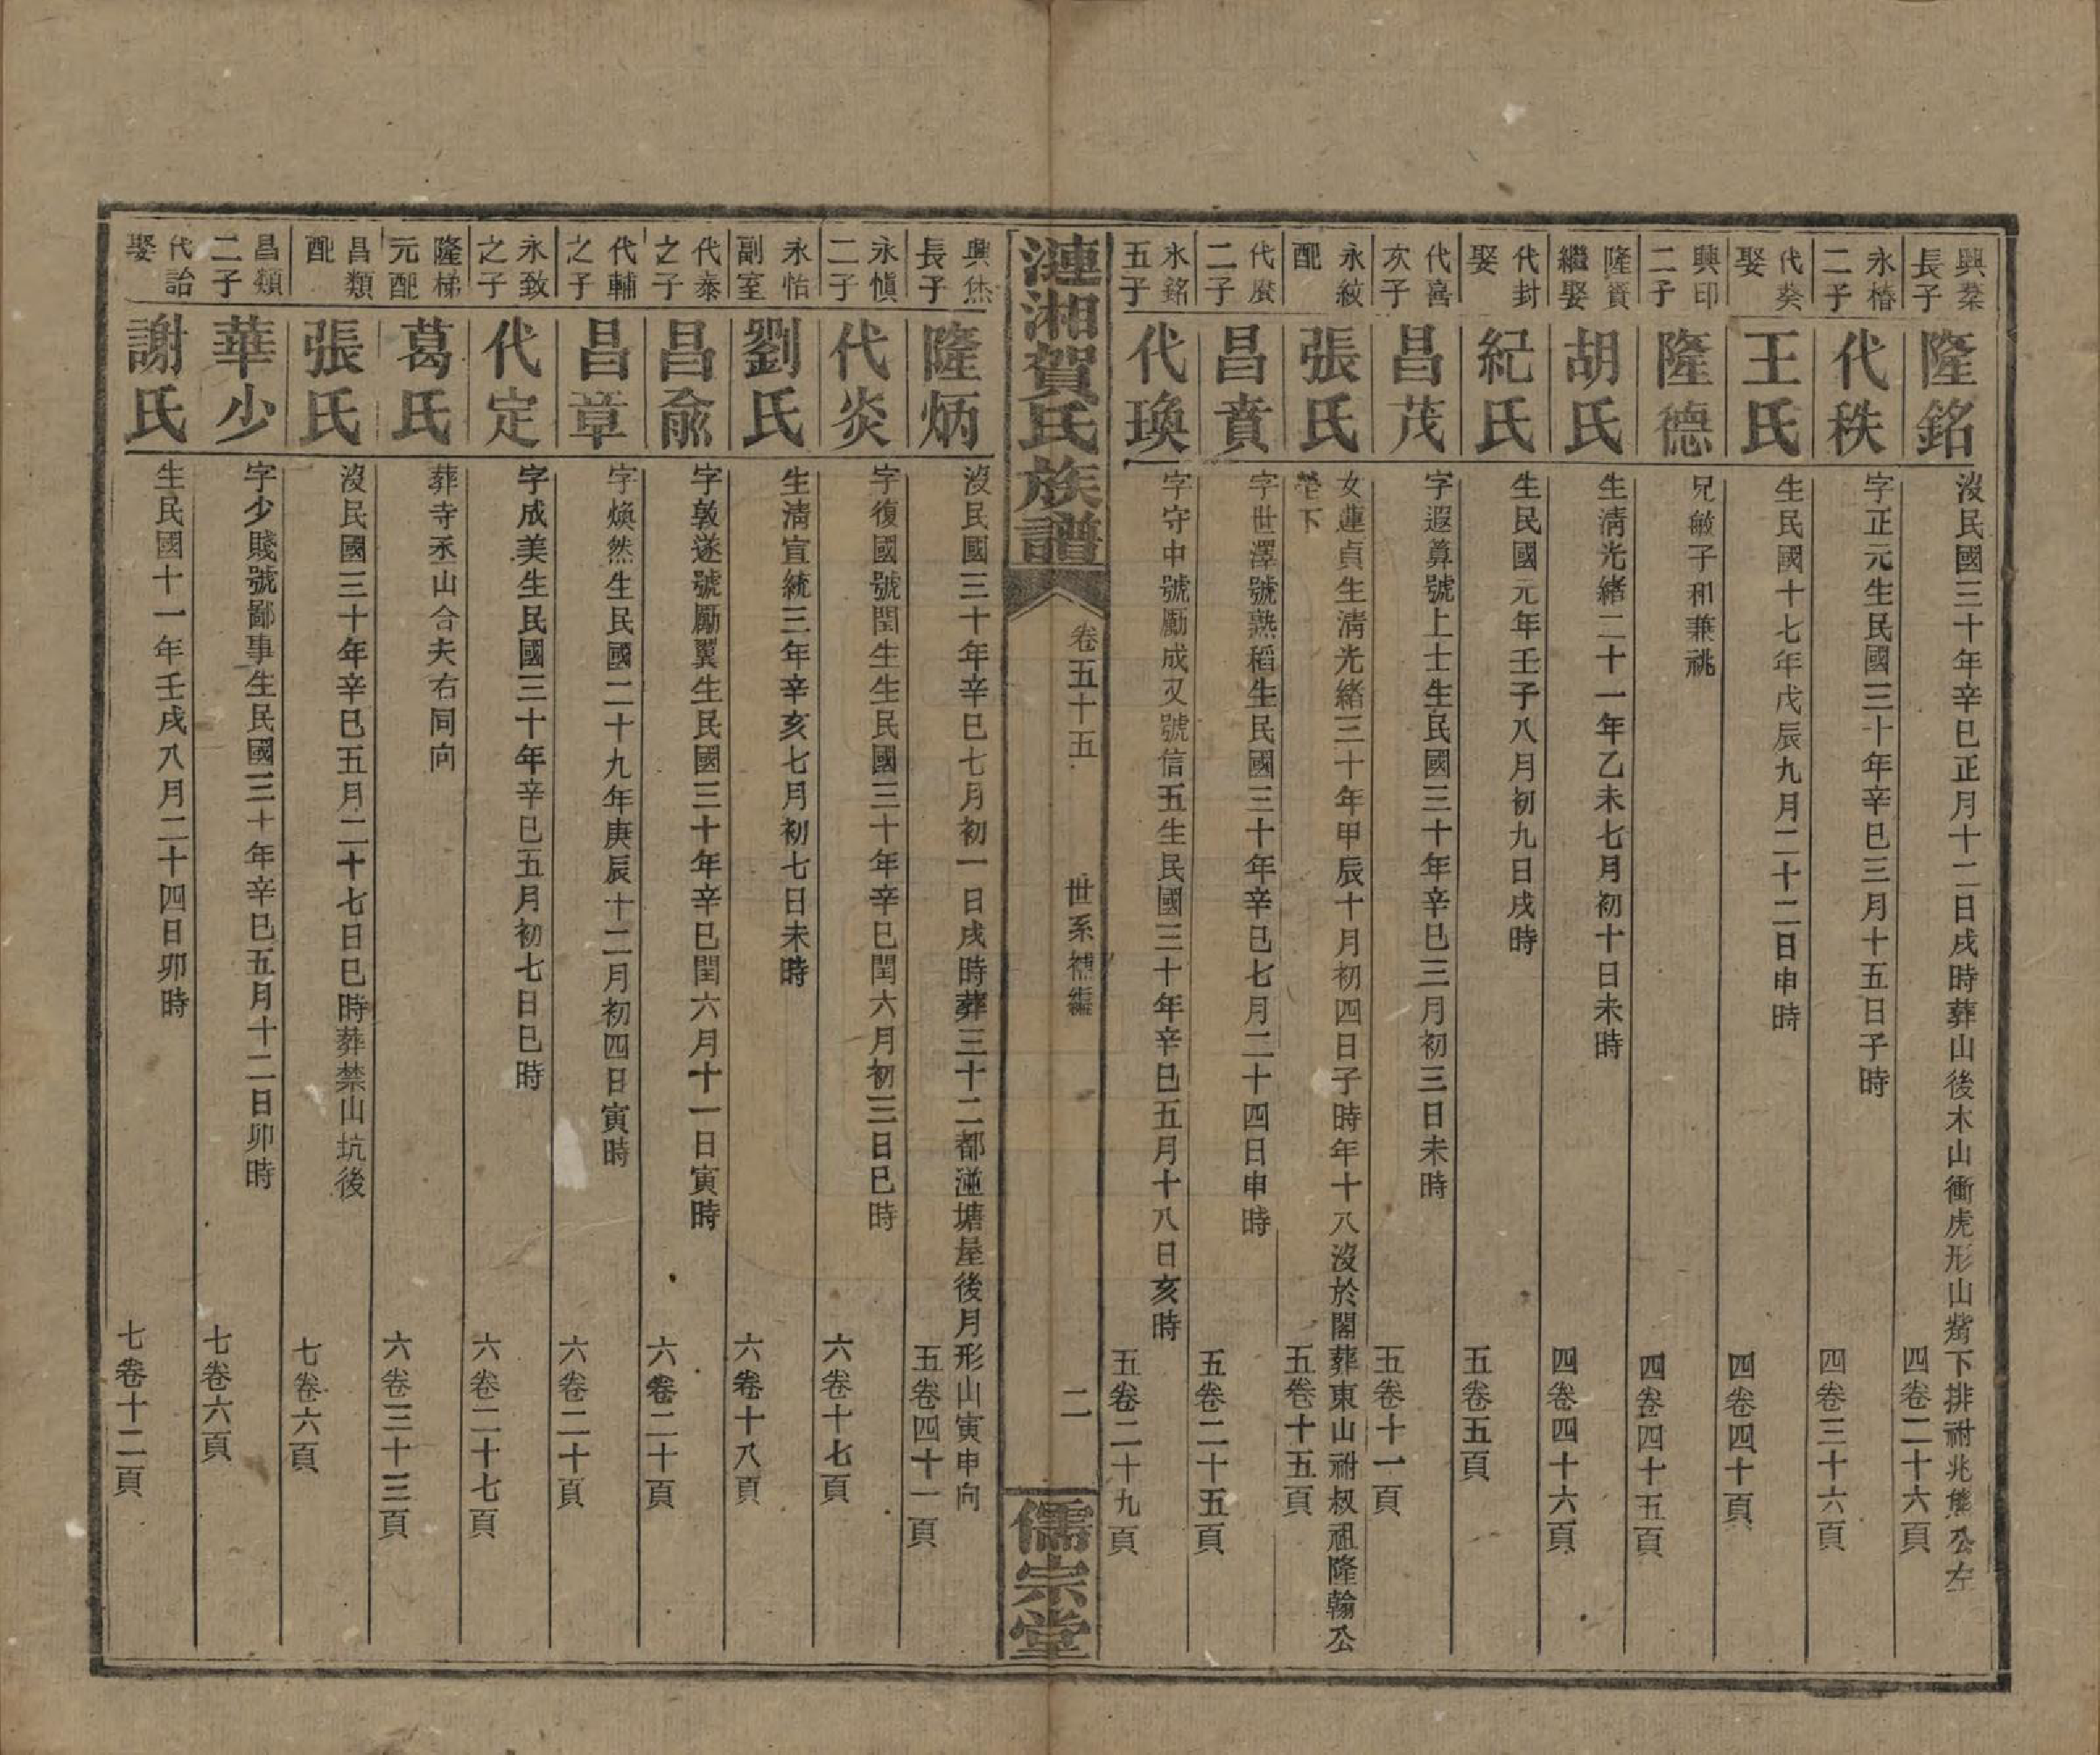 興棻長子
隆銘
沒民國三十年辛巳正月十二日戌時葬山後木山衝虎形山塋下排祔兆熊公左
四卷二十六頁
永椿二子
代秩
字正元生民國三十年辛巳三月十五日子時
四卷三十六頁
代葵娶
王氏
生民國十七年戊辰九月二十二日申時
四卷四十頁
興印二子
隆德
兄敏子和兼祧
四卷四十五頁
隆賓繼娶
胡氏
生清光緒二十一年乙未七月初十日未時
四卷四十六頁
代封娶
紀氏
生民國元年壬子八月初九日戌時
五卷五頁
代喜次子
昌茂
字遐算號上士生民國三十年辛巳三月初三日未時
五卷十一頁
永紋配
張氏
女蓮貞生清光緒三十年甲辰十月初四日子時年十八沒於閣葬東山祔叔祖隆翰公
塋下
五卷十五頁
代賡二子
昌賁
字世澤號熟稻生民國三十年辛巳七月二十四日申時
五卷二十五頁
永銘五子
代瑍
字守中號勵成又號信五生民國三十年辛巳五月十八日亥時
五卷二十九頁
漣湘賀氏族譜
卷五十五
世系補編
二
儒宗堂
興烋長子
隆炳
沒民國三十年辛巳七月初一日戌時葬三十二都湴塘屋後月形山寅申向
五卷四十一頁
永愼二子
代炎
字復國號閏生生民國三十年辛巳閏六月初三日巳時
六卷十七頁
永怡副室
劉氏
生清宣統三年辛亥七月初七日未時
六卷十八頁
代泰之子
昌兪
字敦遂號勵翼生民國三十年辛巳閏六月十一日寅時
六卷二十頁
代輔之子
昌章
字煥然生民國二十九年庚辰十二月初四日寅時
六卷二十頁
永致之子
代定
字成美生民國三十年辛巳五月初七日巳時
六卷二十七頁
隆梯元配
葛氏
葬寺丞山合夫右同向
六卷三十三頁
昌類配
張氏
沒民國三十年辛巳五月二十七日巳時葬禁山坑後
七卷六頁
昌類二子
華少
字少賤號鄙事生民國三十年辛巳五月十二日卯時
七卷六頁
代詒娶
謝氏
生民國十一年壬戌八月二十四日卯時
七卷十二頁